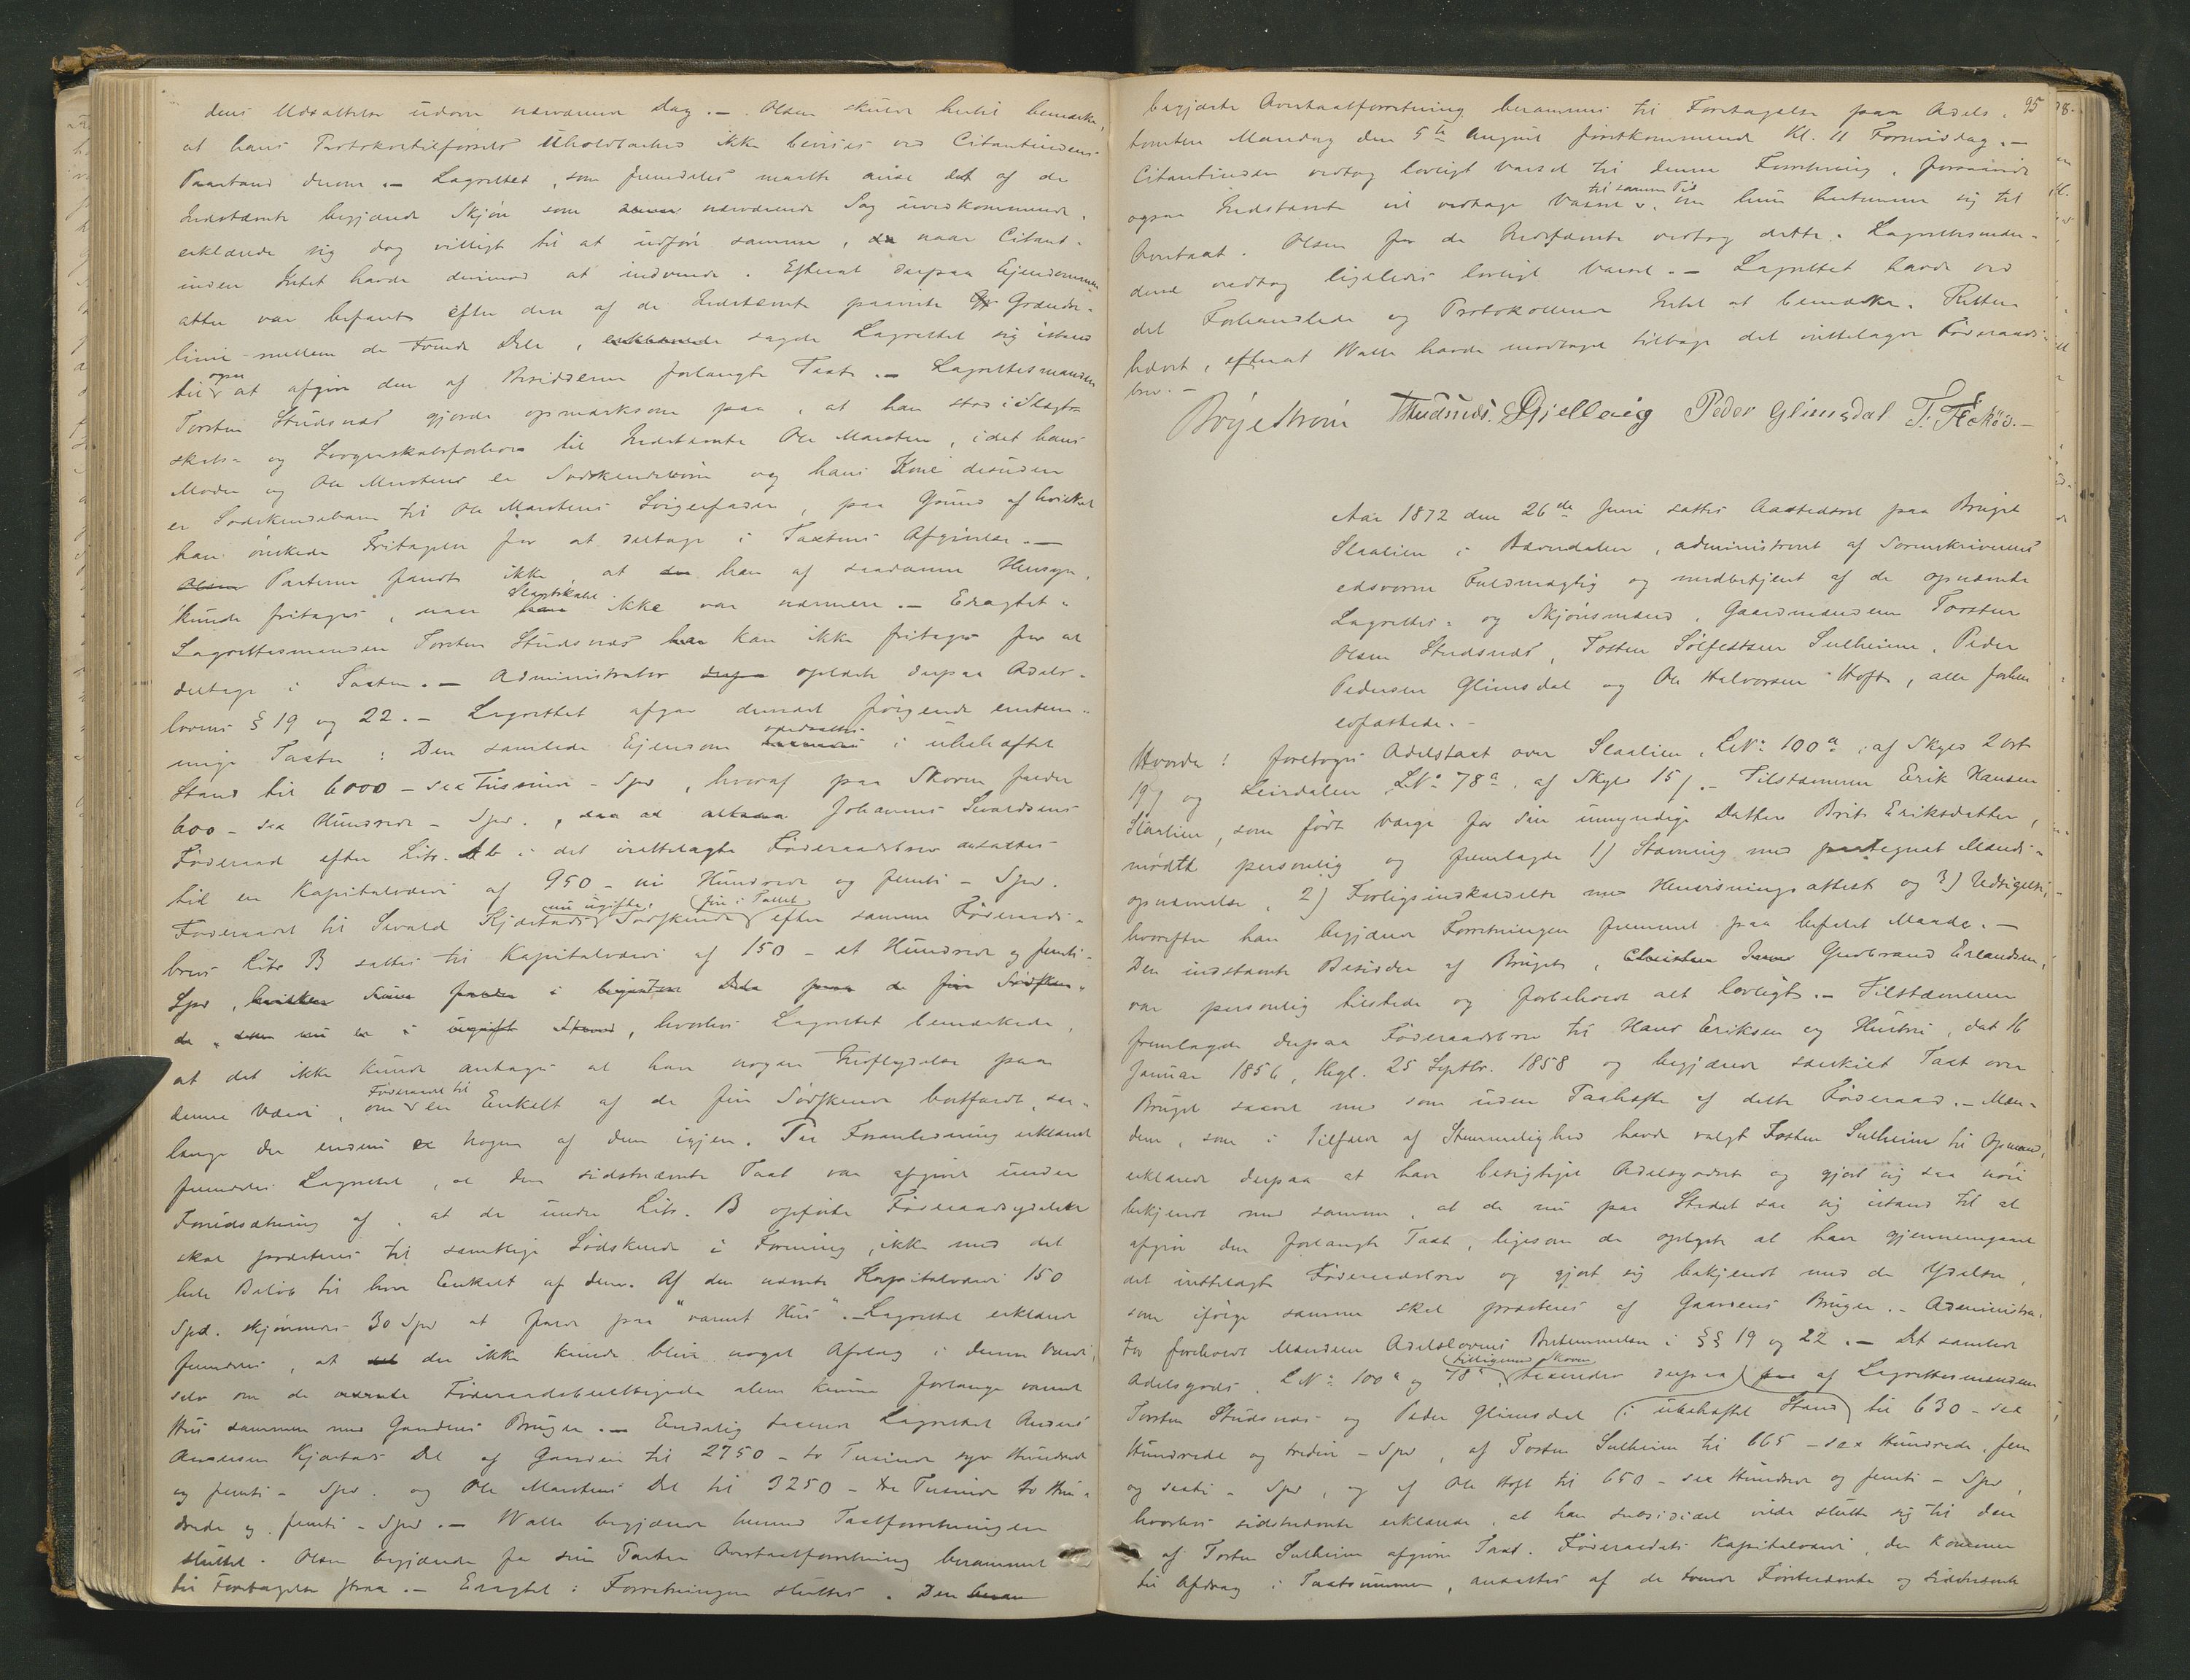 dens Udsættelse udover nærværende Dag. — Olsen skulde hertil bemærke,
at hans Protokoltilførsels Uholdbarhed ikke bevises ved Citantindens
Paastand derom. — Lagrettet, som fremdeles maatte anse det af de
Indstævnte begjærede Skjøn som nærværende Sag uvedkommende,
erklærede sig dog villigt til at udføre samme, naar Citant-
inden Intet havde derimod at indvende. Efterat derpaa Ejendommen
atter var befaret efter den af de Indstævnte paaviste Grændse-
linie mellem de tvende Dele, sagde Lagrettet sig istand
til ogsaa at afgive den af Besidderne forlangte Taxt. — Lagrettesmanden
Torsten Studsnæs gjorde opmærksom paa, at han stod i Slægt-
skabs- og Svogerskabsforhold til Indstævnte Ole Marsten, idet hans
Moder og Ole Marstens er Sødskendebørn og hans Kone desuden
er Sødskendebarn til Ole Marstens Svigerfader, paa Grund af hvilket
han ønskede Fritagelse for at deltage i Taxtens Afgivelse. —
Parterne fandt ikke, at han af saadanne Hensyn
kunde fritages, naar Slægtskabet ikke var nærmere. — Eragtet:
Lagrettesmanden Torsten Studsnæs kan ikke fritages for at
deltage i Taxten. — Administrator oplæste derpaa Odels-
lovens § 19 og 22. — Lagrettet afgav dernæst følgende enstem-
mige Taxt: Den samlede Ejendom ansættes i ubehæftet
Stand til 6000 – sex Tusinde – Spd, hvoraf paa Skoven falder
600 – sex Hundrede – Spd. Johannes Sevaldsens
Føderaad efter Litr. A i det irettelagte Føderaadsbrev ansættes
til en Kapitalværdi af 950 – ni Hundrede og femti – Spd.
Føderaadet til Sevald Kjæstads nu ugifte, fire i Tallet, Sødskende efter samme Føderaads-
brevs Litr B sættes til Kapitalværdi af 150 – et Hundrede og femti –
Spd, i de fire Sødsken-
de, hvorhos Lagrettet bemærkede,
at det ikke kunde antages at have nogen Indflydelse paa
denne Værdi, om Føderaadet til en Enkelt af de fire Sødskende bortfaldt, saa-
længe der endnu er nogen af dem igjen. Paa Foranledning erklærede
fremdeles Lagrettet, at den sidstnævnte Taxt var afgivet under
Forudsætning af, at de under Litr. B opførte Føderaadsydelser
skal præsteres til samtlige Sødskende i Forening, ikke med det
hele Beløb til hver Enkelt af dem. Af den nævnte Kapitalværdi 150
Spd. skjønnedes 30 Spd at falde paa "varmt Hus". Lagrettet erklærede
fremdeles, at der ikke kunde blive noget Afslag i denne Værdi,
selv om de Føderaadsberettigede alene kunne forlange varmt
Hus sammen med Gaardens Bruger. — Endelig taxerede Lagrettet Anders
Andersen Kjæstads Del af Gaarden til 2750 – to Tusinde syv Hundrede
og femti – Spd. og Ole Marstens Del til 3250 – tre Tusinde to Hun-
drede og femti – Spd. — Walle begjærede hermed Taxtforretningen
sluttet. Olsen begjærede for sine Parter Overtaxtforretning berammet
til Foretagelse strax. — Eragtet: Forretningen sluttes. Den
95
begjærte Overtaxtforretning berammes til Foretagelse paa Odels-
tomten Mandag den 5te August førstkommende Kl. 11 Formiddag. —
Citantinden vedtog lovligt Varsel til denne Forretning, forsaavidt
ogsaa Indstævnte vil vedtage Varsel til samme Tid, om hun bestemmer sig til
Overtaxt. Olsen for de Indstævnte vedtog dette. Lagrettesmæn-
dene vedtog ligeledes lovligt Varsel. — Lagrettet havde ved
det Forhandlede og Protokollerede Intet at bemærke. Retten
hævet, efterat Walle havde modtaget tilbage det irettelagte Føderaads-
brev. —
Peder Glimsdal
Aar 1872 den 26de Juni sattes Aastedsret paa Bruget
Slaalien i Hævndalen, administreret af Sorenskriverens
edsvorne Fuldmægtig og medbetjent af de opnævnte
Lagrettes- og Skjønsmænd, Gaardmændene Torsten
Olsen Studsnæs, Tosten Sølfestsen Sulheim, Peder
Pedersen Glimsdal og Ole Halvorsen Hoft, alle forhen
edfæstede. –
Hvorda: foretoges Odelstaxt over Slaalien, LN: 100a, af Skyld 2 ort
19 ʃ og Leirdalen LN: 78a, af Skyld 15 ʃ. — Tilstævneren Erik Hansen
Slaalien, som født Værge for sin umyndige Datter Brit Eriksdatter,
mødte personlig og fremlagde 1) Stævning med paategnet Mands-
opnævnelse, 2) Forligsindkaldelse med Henvisningsattest og 3) Udsigelse,
hvorefter han begjærede Forretningen fremmet paa befalet Maade. —
Den indstævnte Besidder af Bruget, Gudbrand Erlandsen,
var personlig tilstede og forbeholdt alt lovligt. — Tilstævneren
fremlagde derpaa Føderaadsbrev til Hans Eriksen og Hustru, dat 16
Januar 1856, thgl. 25 Septbr. 1858 og begjærede særskilt Taxt over
Bruget saavel med som uden Paahefte af dette Føderaad. — Mæn-
dene, som i Tilfælde af Stemmelighed havde valgt Tosten Sulheim til Opmand,
erklærede derpaa at have besigtiget Odelsgodset og gjort sig saa nøie
bekjendt med samme, at de nu paa Stedet saa sig istand til at
afgive den forlangte Taxt, ligesom de oplyste at have gjennemgaaet
det irettelagte Føderaadsbrev og gjort sig bekjendt med de Ydelser,
som ifølge samme skal præsteres af Gaardens Bruger. – Administra-
tor foreholdt Mændene Odelslovens Bestemmelser i §§ 19 og 22. — Det samlede
Odelsgods, LN: 100a og 78a, tilligemed Skoven, taxeredes derpaa af Lagrettesmændene
Torsten Studsnæs og Peder Glimsdal i ubehæftet Stand til 630 – sex
Hundrede og tredive – Spd, af Tosten Sulheim til 665 – sex Hundrede, fem
og sexti – Spd, og af Ole Hoft til 650 – sex Hundrede og femti – Spd,
hvorhos sidstnævnte erklærede, at han subsidiært vilde slutte sig til den
af Tosten Sulheim afgivne Taxt. Føderaadets Kapitalværdi, der kommer
til Afdrag i Taxtsummen, ansattes af de tvende Førstnævnte og Sidstnævnte